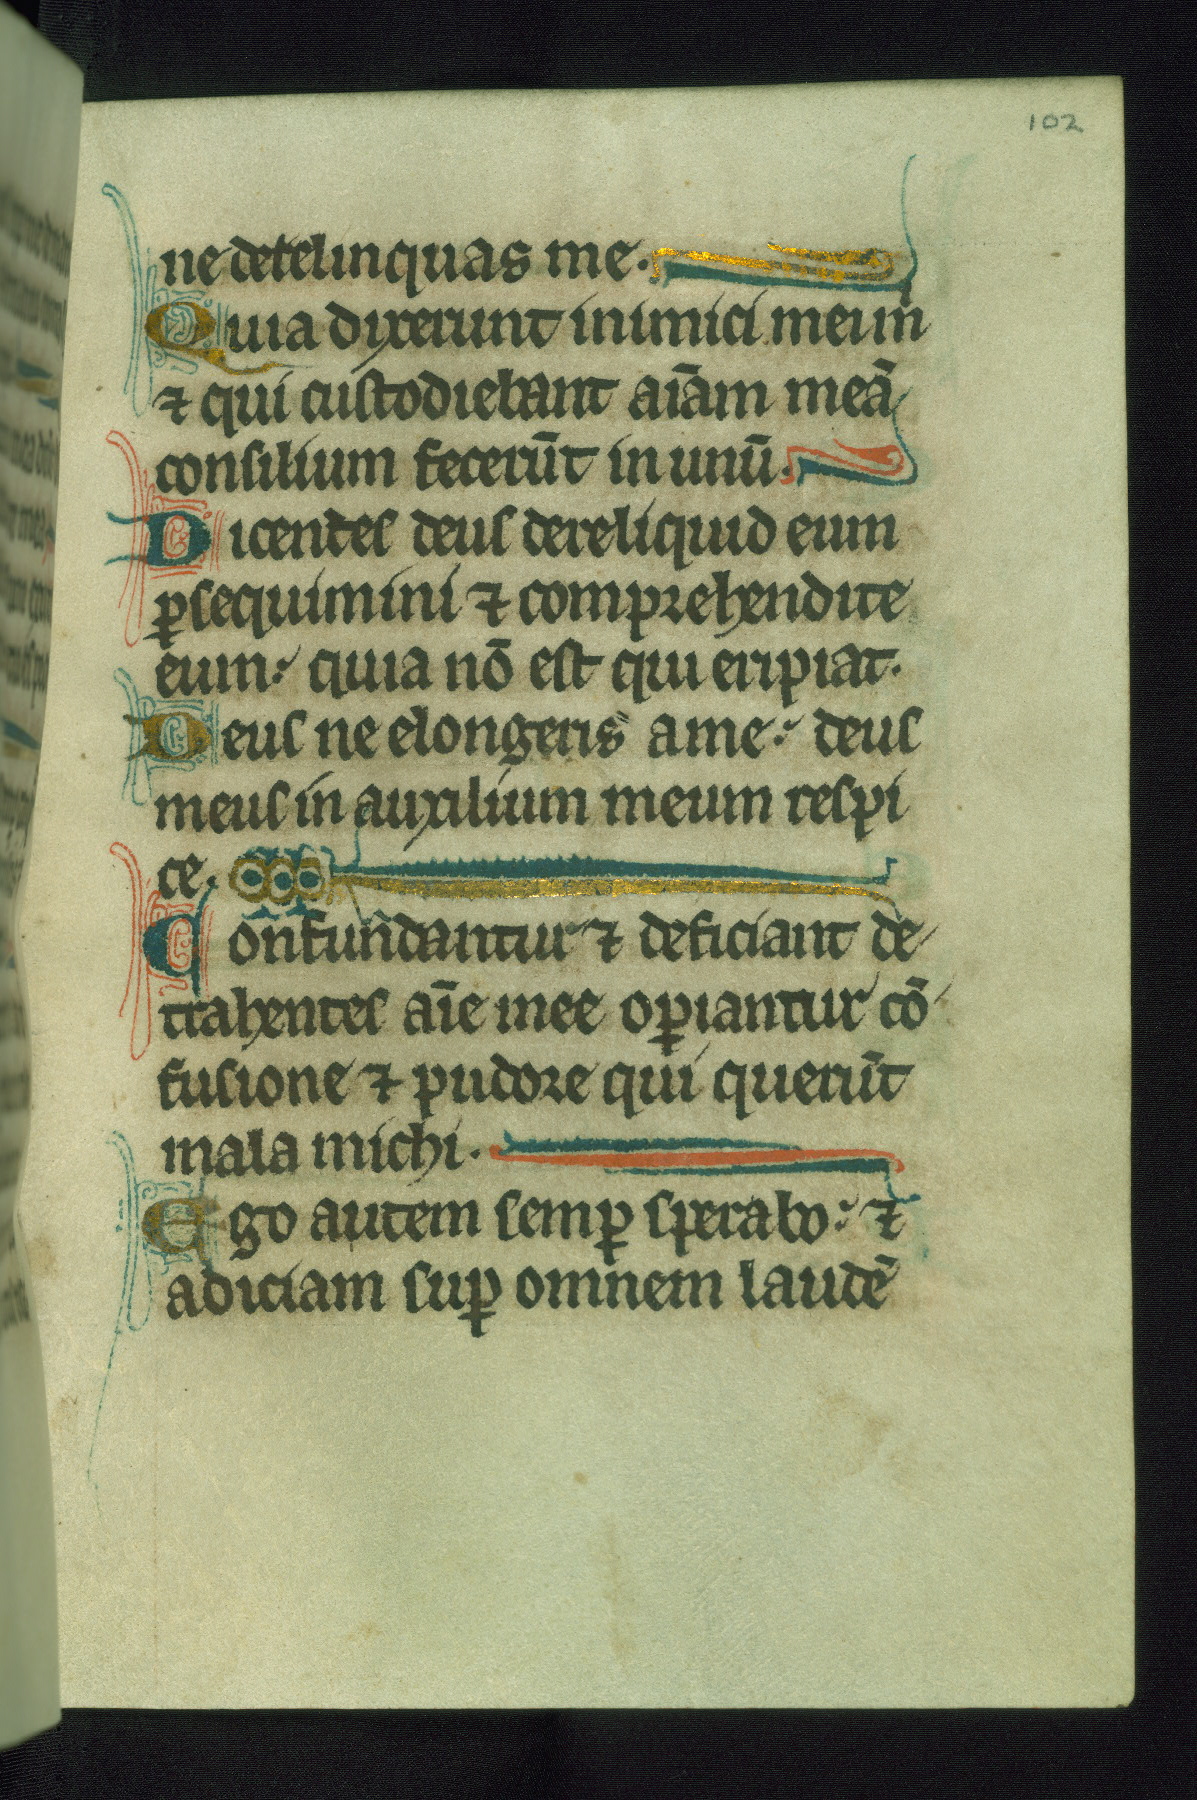 102
ne derelinquas me.
Quia dixerunt inimici mei m̄
⁊ qui custodiebant aīam meā
consilium fecerūt in unū.
Dicentes deus dereliquid eum
ꝑsequimini ⁊ comprehendite
eum: quia nō est qui eripiat.
Deus ne elongeris a me: deus
meus in auxilium meum respi
ce.
Confundantur ⁊ deficiant de
trahentes aīe mee oꝑiantur cō
fusione ⁊ pudore qui querūt
mala michi.
Ego autem semꝑ sperabo: ⁊
adiciam suꝑ omnem laudē